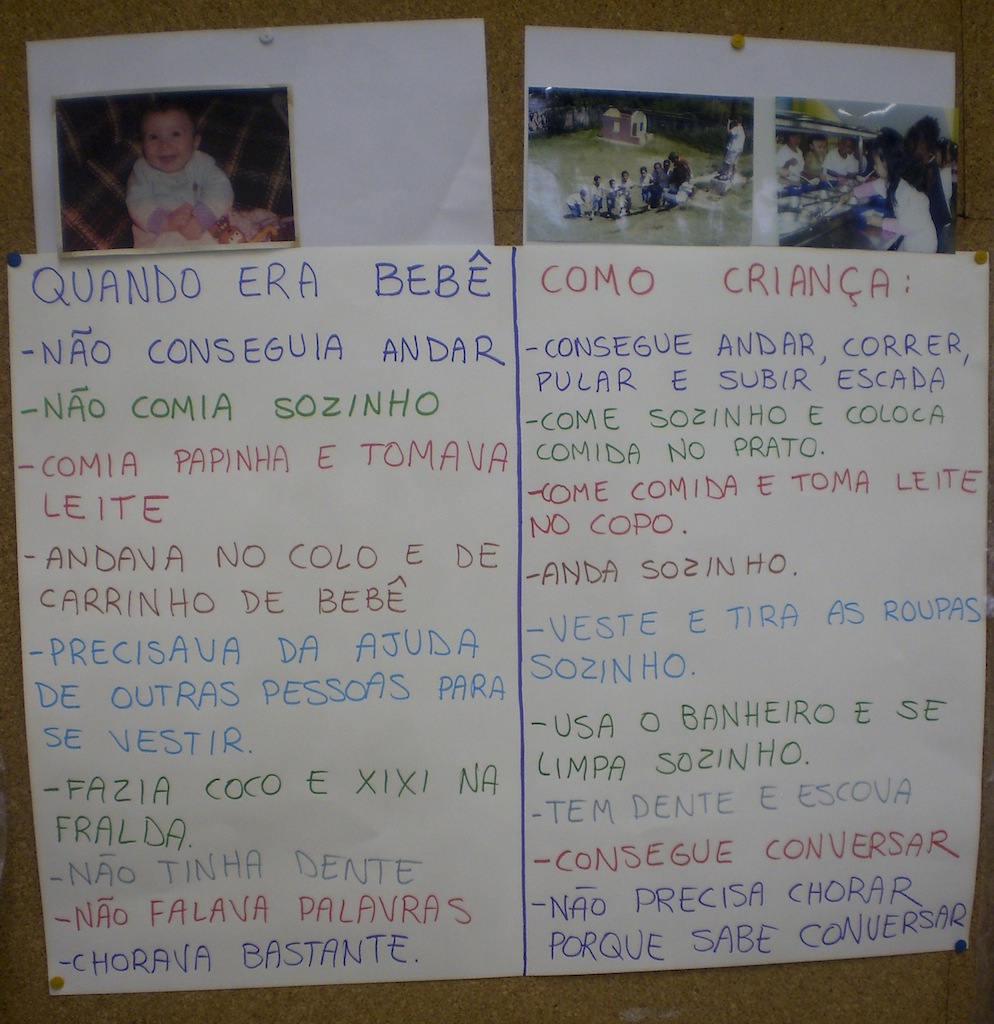 QUANDO ERA BEBÊ
-NÃO CONSEGUIA ANDAR
-NÃO COMIA SOZINHO
-COMIA PAPINHA E TOMAVA
LEITE
-ANDAVA NO COLO E DE
CARRINHO DE BEBÊ
-PRECISAVA DA AJUDA
DE OUTRAS PESSOAS PARA
SE VESTIR.
-FAZIA COCO E XIXI NA
FRALDA.
-NÃO TINHA DENTE
-NÃO FALAVA PALAVRAS
-CHORAVA BASTANTE.
COMO CRIANÇA:
-CONSEGUE ANDAR, CORRER,
PULAR E SUBIR ESCADA
-COME SOZINHO E COLOCA
COMIDA NO PRATO.
-COME COMIDA E TOMA LEITE
NO COPO.
-ANDA SOZINHO.
-VESTE E TIRA AS ROUPAS
SOZINHO.
-USA O BANHEIRO E SE
LIMPA SOZINHO.
-TEM DENTE E ESCOVA
-CONSEGUE CONVERSAR
-NÃO PRECISA CHORAR
PORQUE SABE CONVERSAR